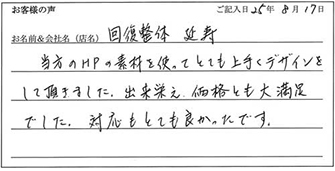 お客様の声 ご記入日 25年 8月 17日
お名前&会社名（店名） 回復整体 延寿
当方のHPの素材を使ってとても上手くデザインを
して頂きました。出来栄え、価格とも大満足
でした。対応もとても良かったです。